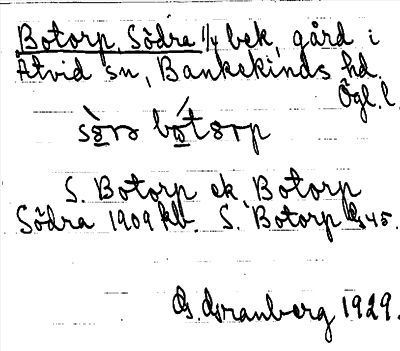 Botorp, Södra 1/4 bek, gård i
Åtvid sn, Bankekinds hd.
Ögl. l.
sɵ̀rə bótɵrp
S. Botorp ek, Botorp
Södra 1909 kb. S. Botorp Gs 45.
G. Granberg 1929.